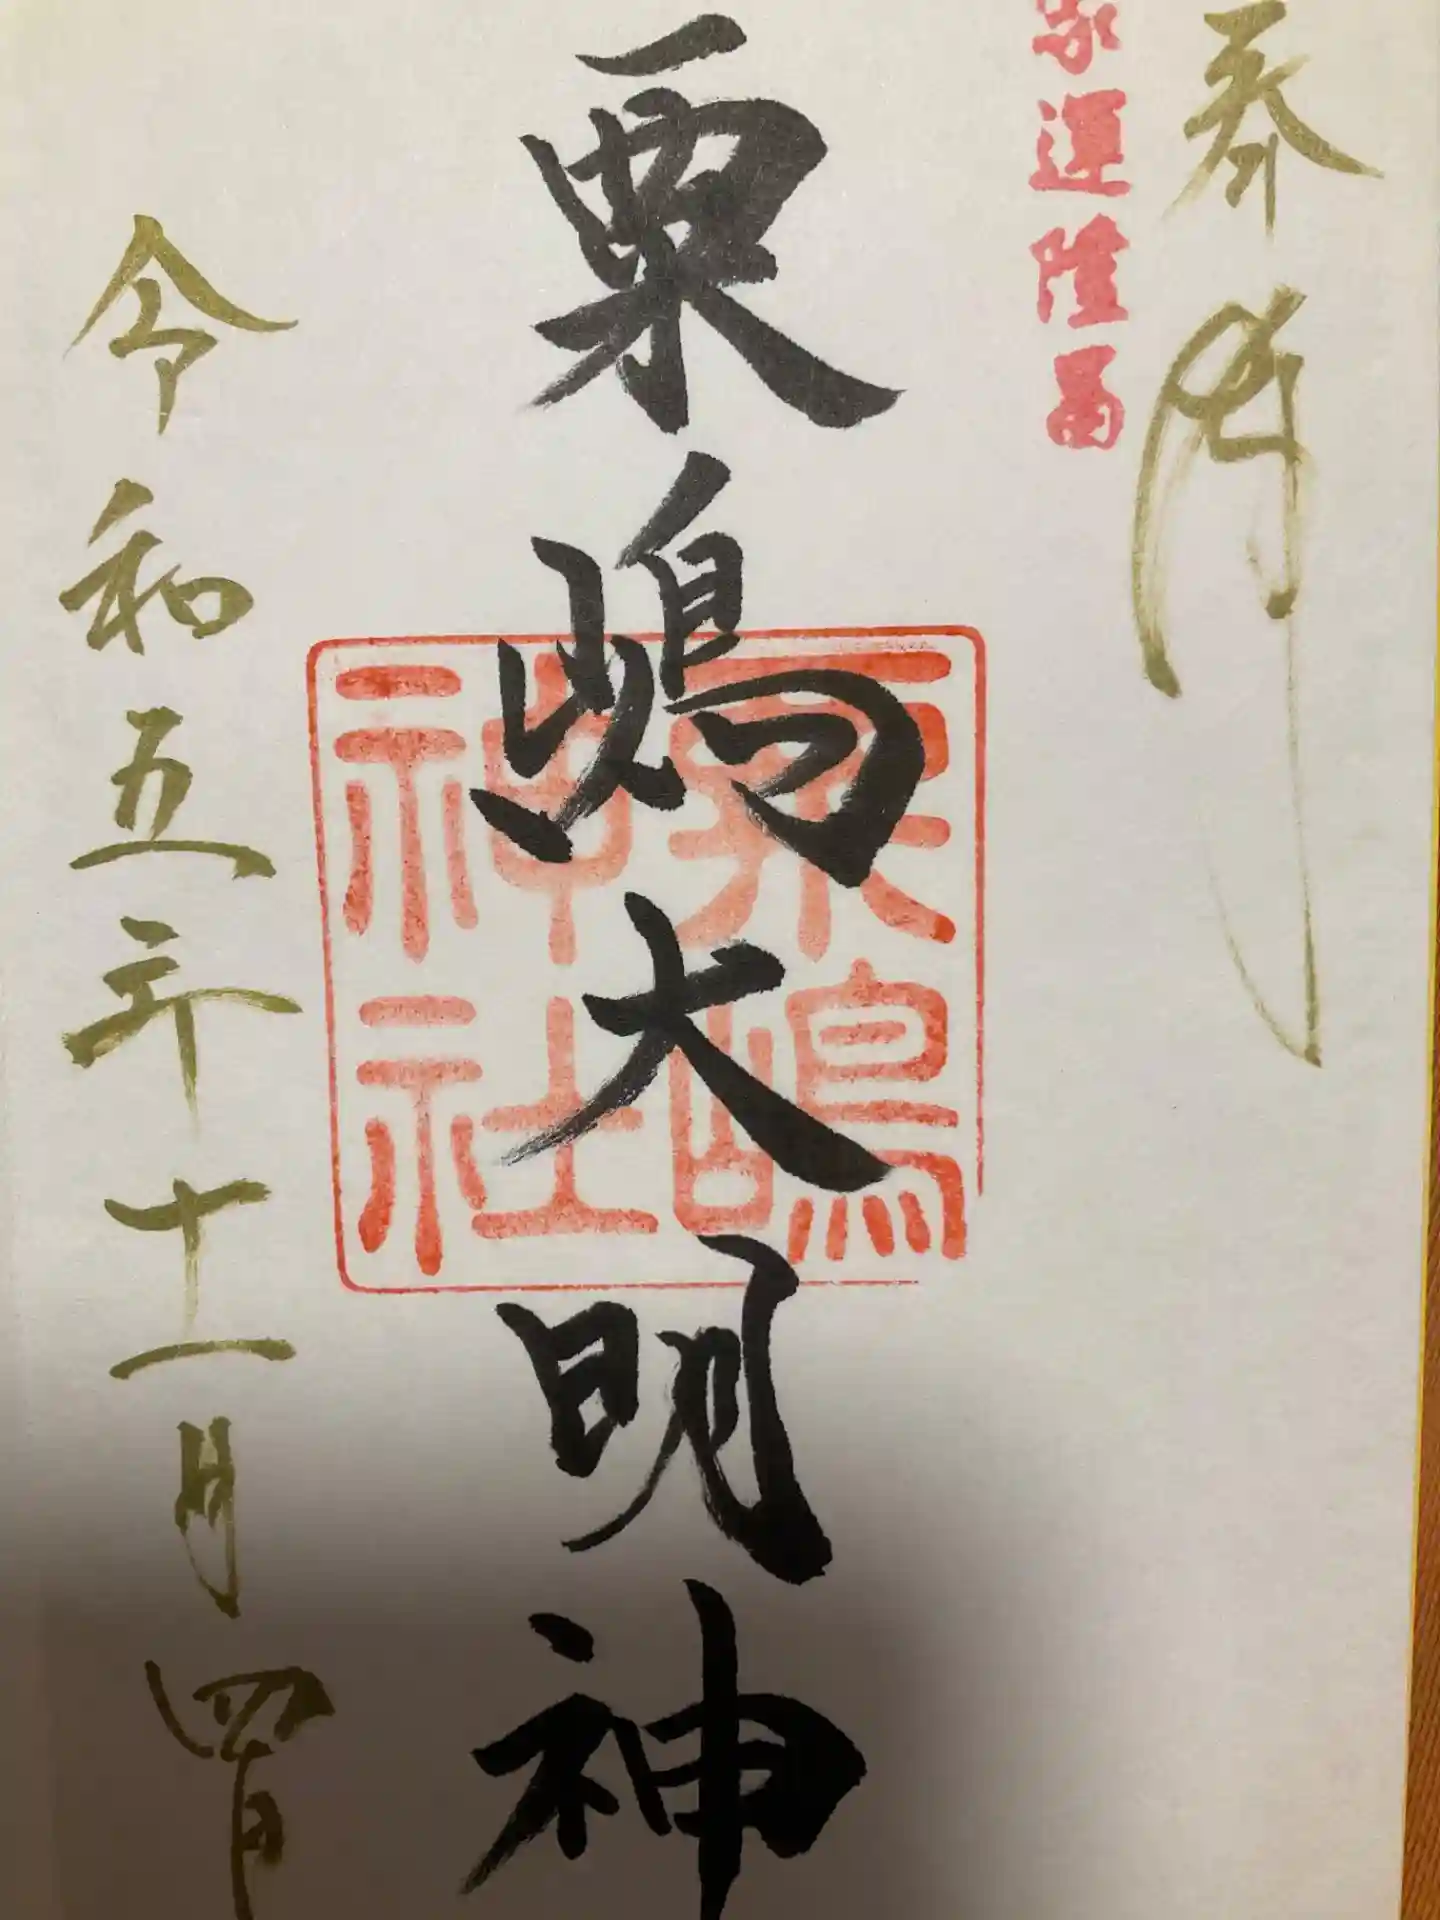 奉拝
家運隆昌
粟嶋大明神
粟嶋
神社
令和五年十一月四日